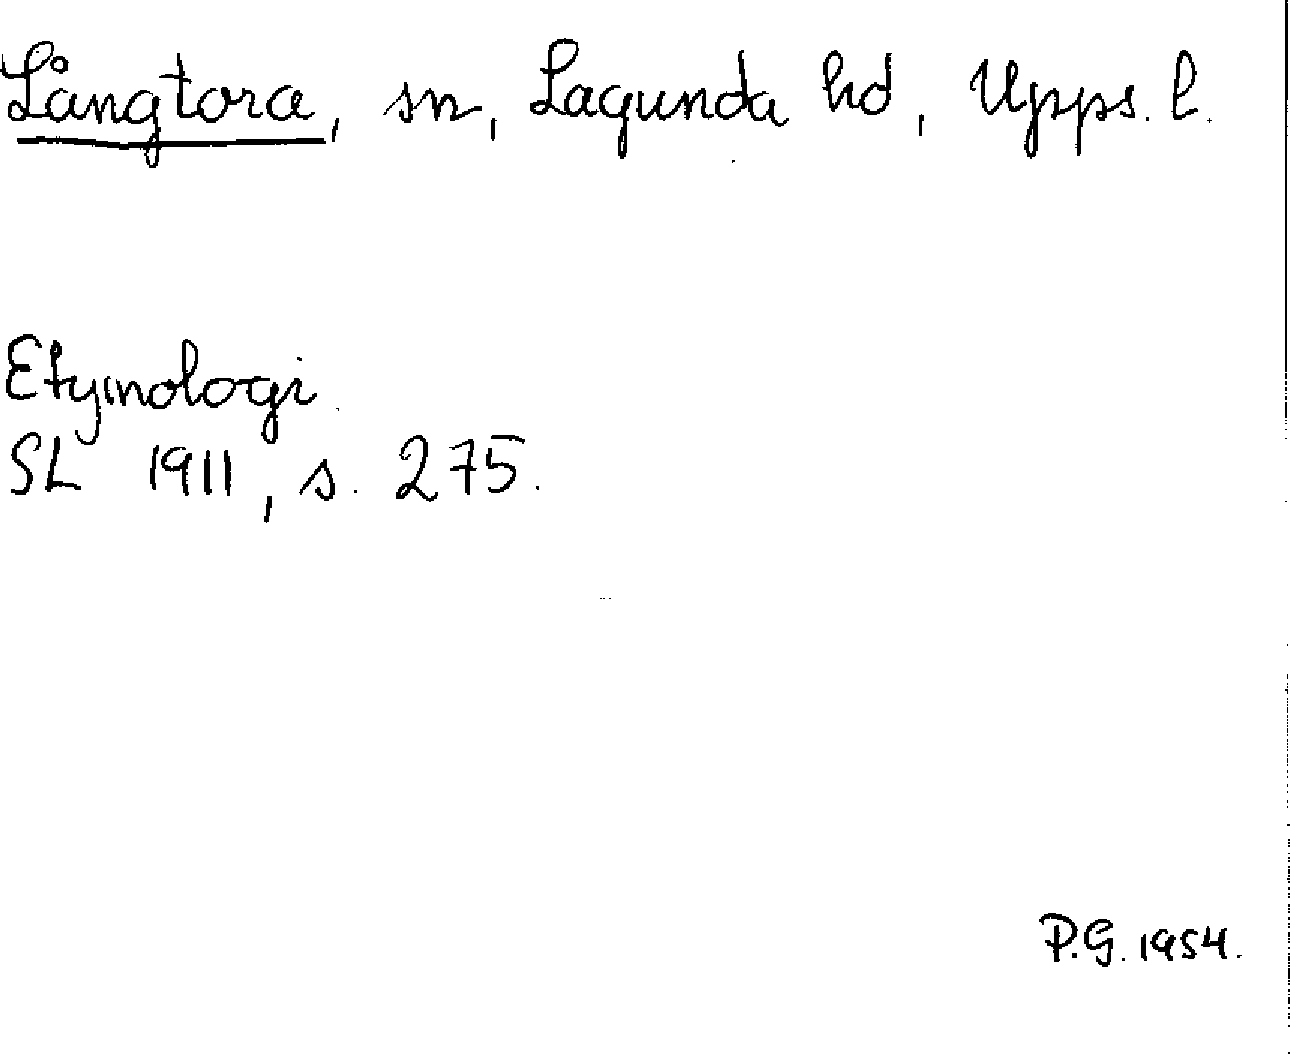 Långtora, sn, Lagunda hd, Upps. l.
Etymologi
SL 1911, s. 275.
P.G. 1954.